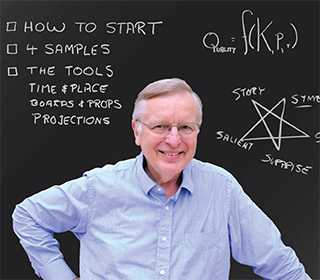 HOW TO START
4 SAMPLES
THE TOOLS
TIME & PLACE
BOARDS & PROPS
PROJECTIONS
Q QUALITY = ∫(K, P, T)
STORY
SYMB
SALIENT
S
SURPRISE